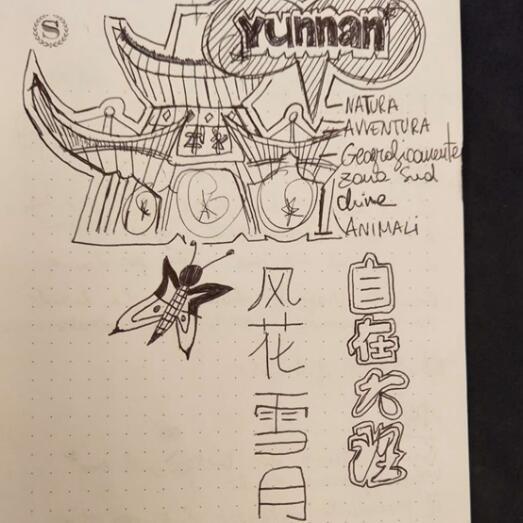 S
yunnan
NATURA
AVVENTURA
Geograficamente
zona Sud
ANIMALI
风花雪月
自在大理